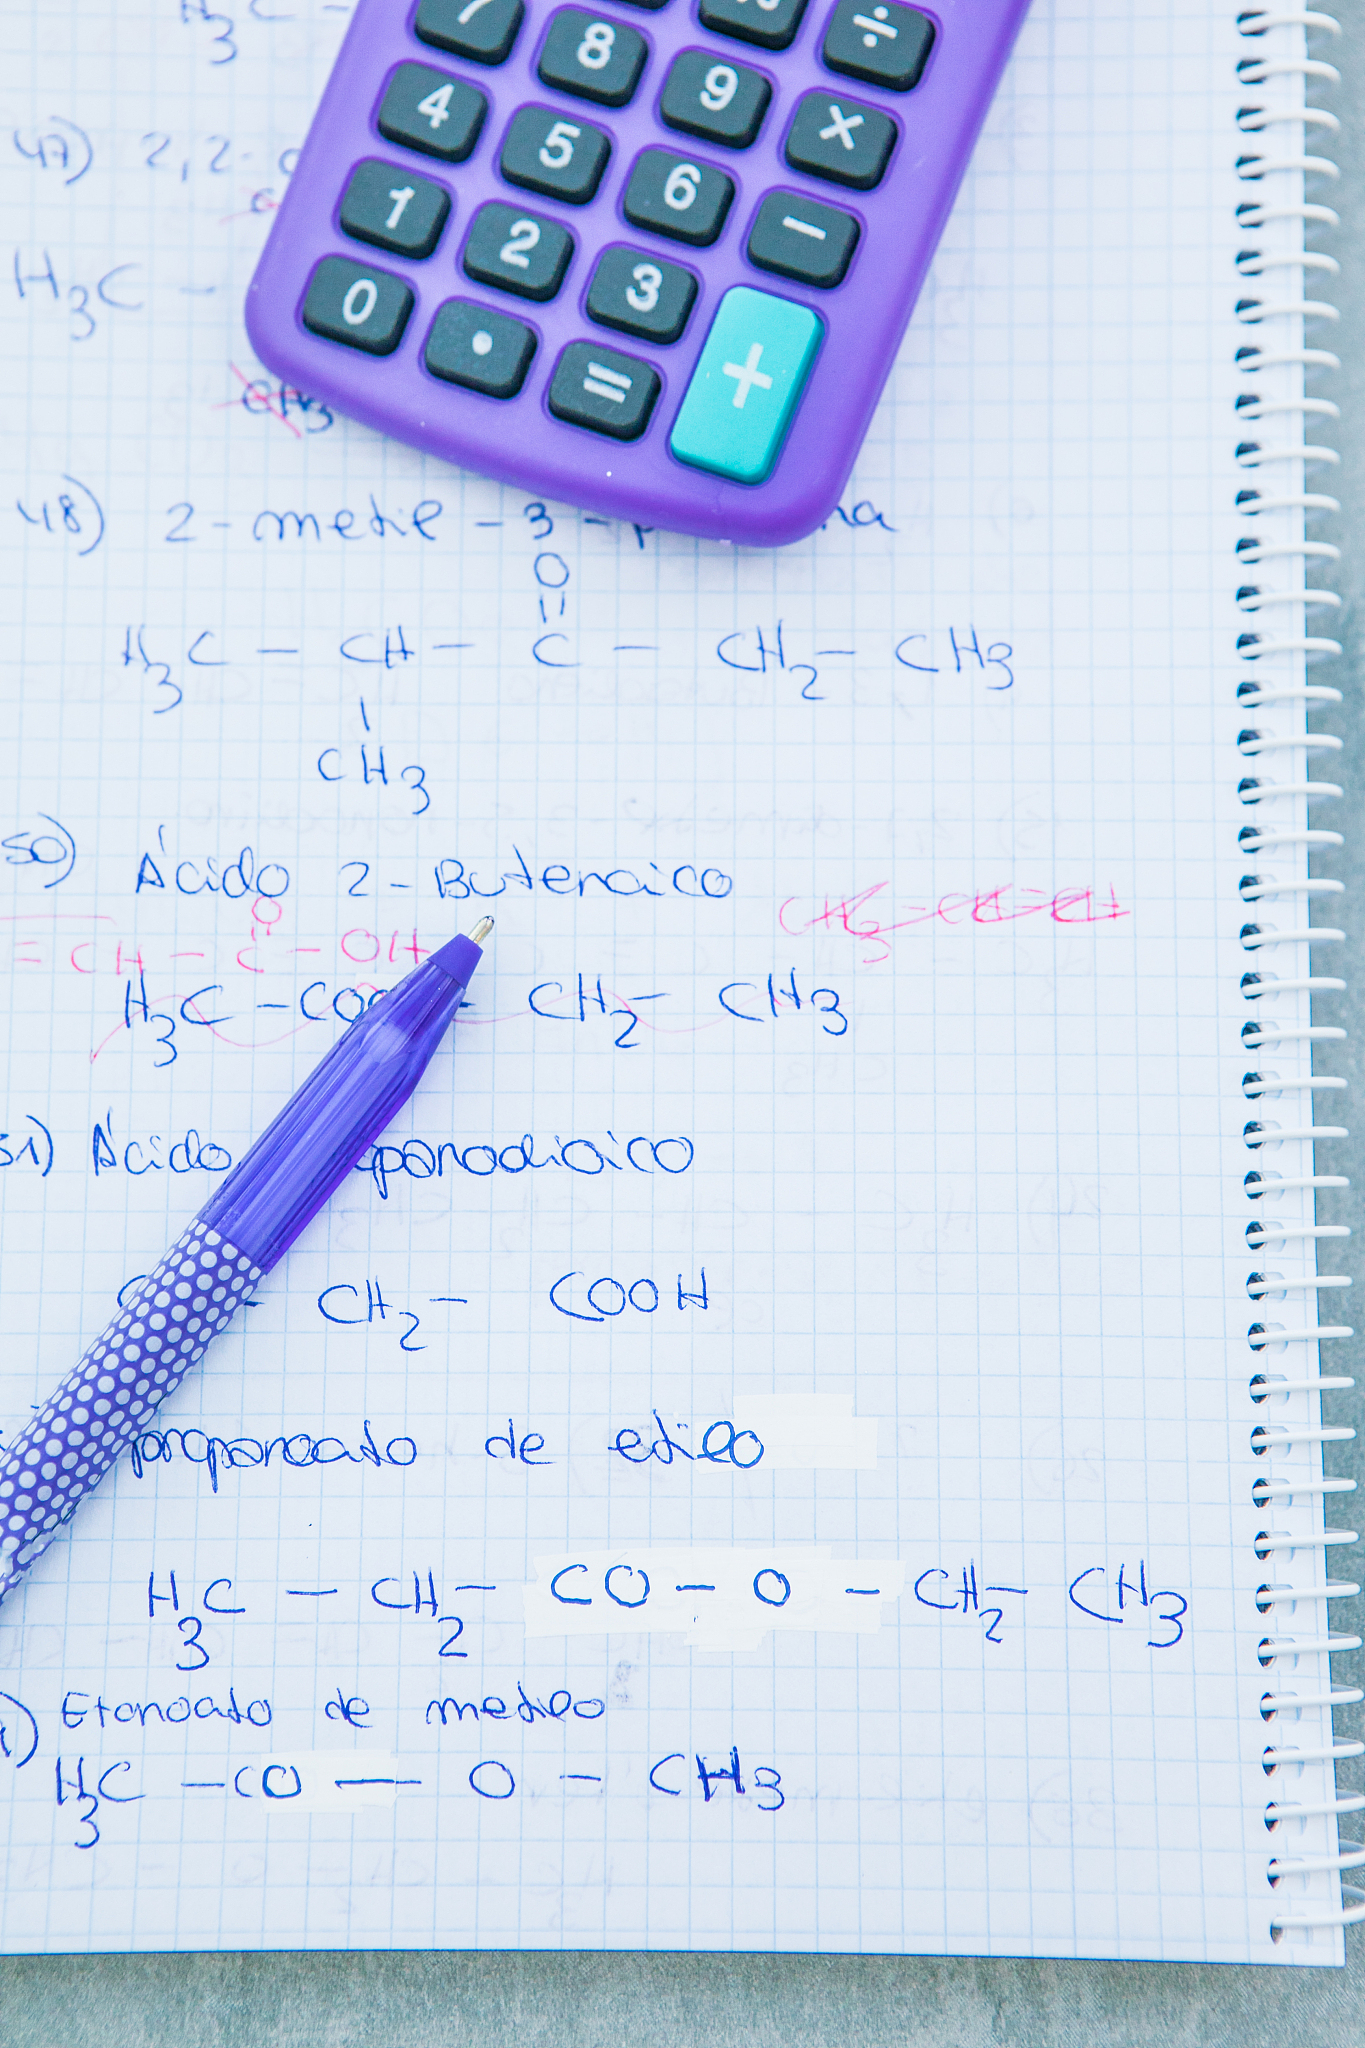 H3C -
7 ÷
8 9 ×
4 5 6 -
1 2 3 +
0 . =
47) 2,2-
H3C -
CH3
48) 2-metil-3-
O
||
H3C - CH - C - CH2 - CH3
|
CH3
50) Ácido 2-Butenoico
CH3-CH=CH
O
||
= CH - C - OH
H3C - CO - CH2 - CH3
51) Ácido panodioico
CH2 - COOH
propanoato de etilo
H3C - CH2 - CO - O - CH2 - CH3
) Etanoato de metilo
H3C - CO - O - CH3